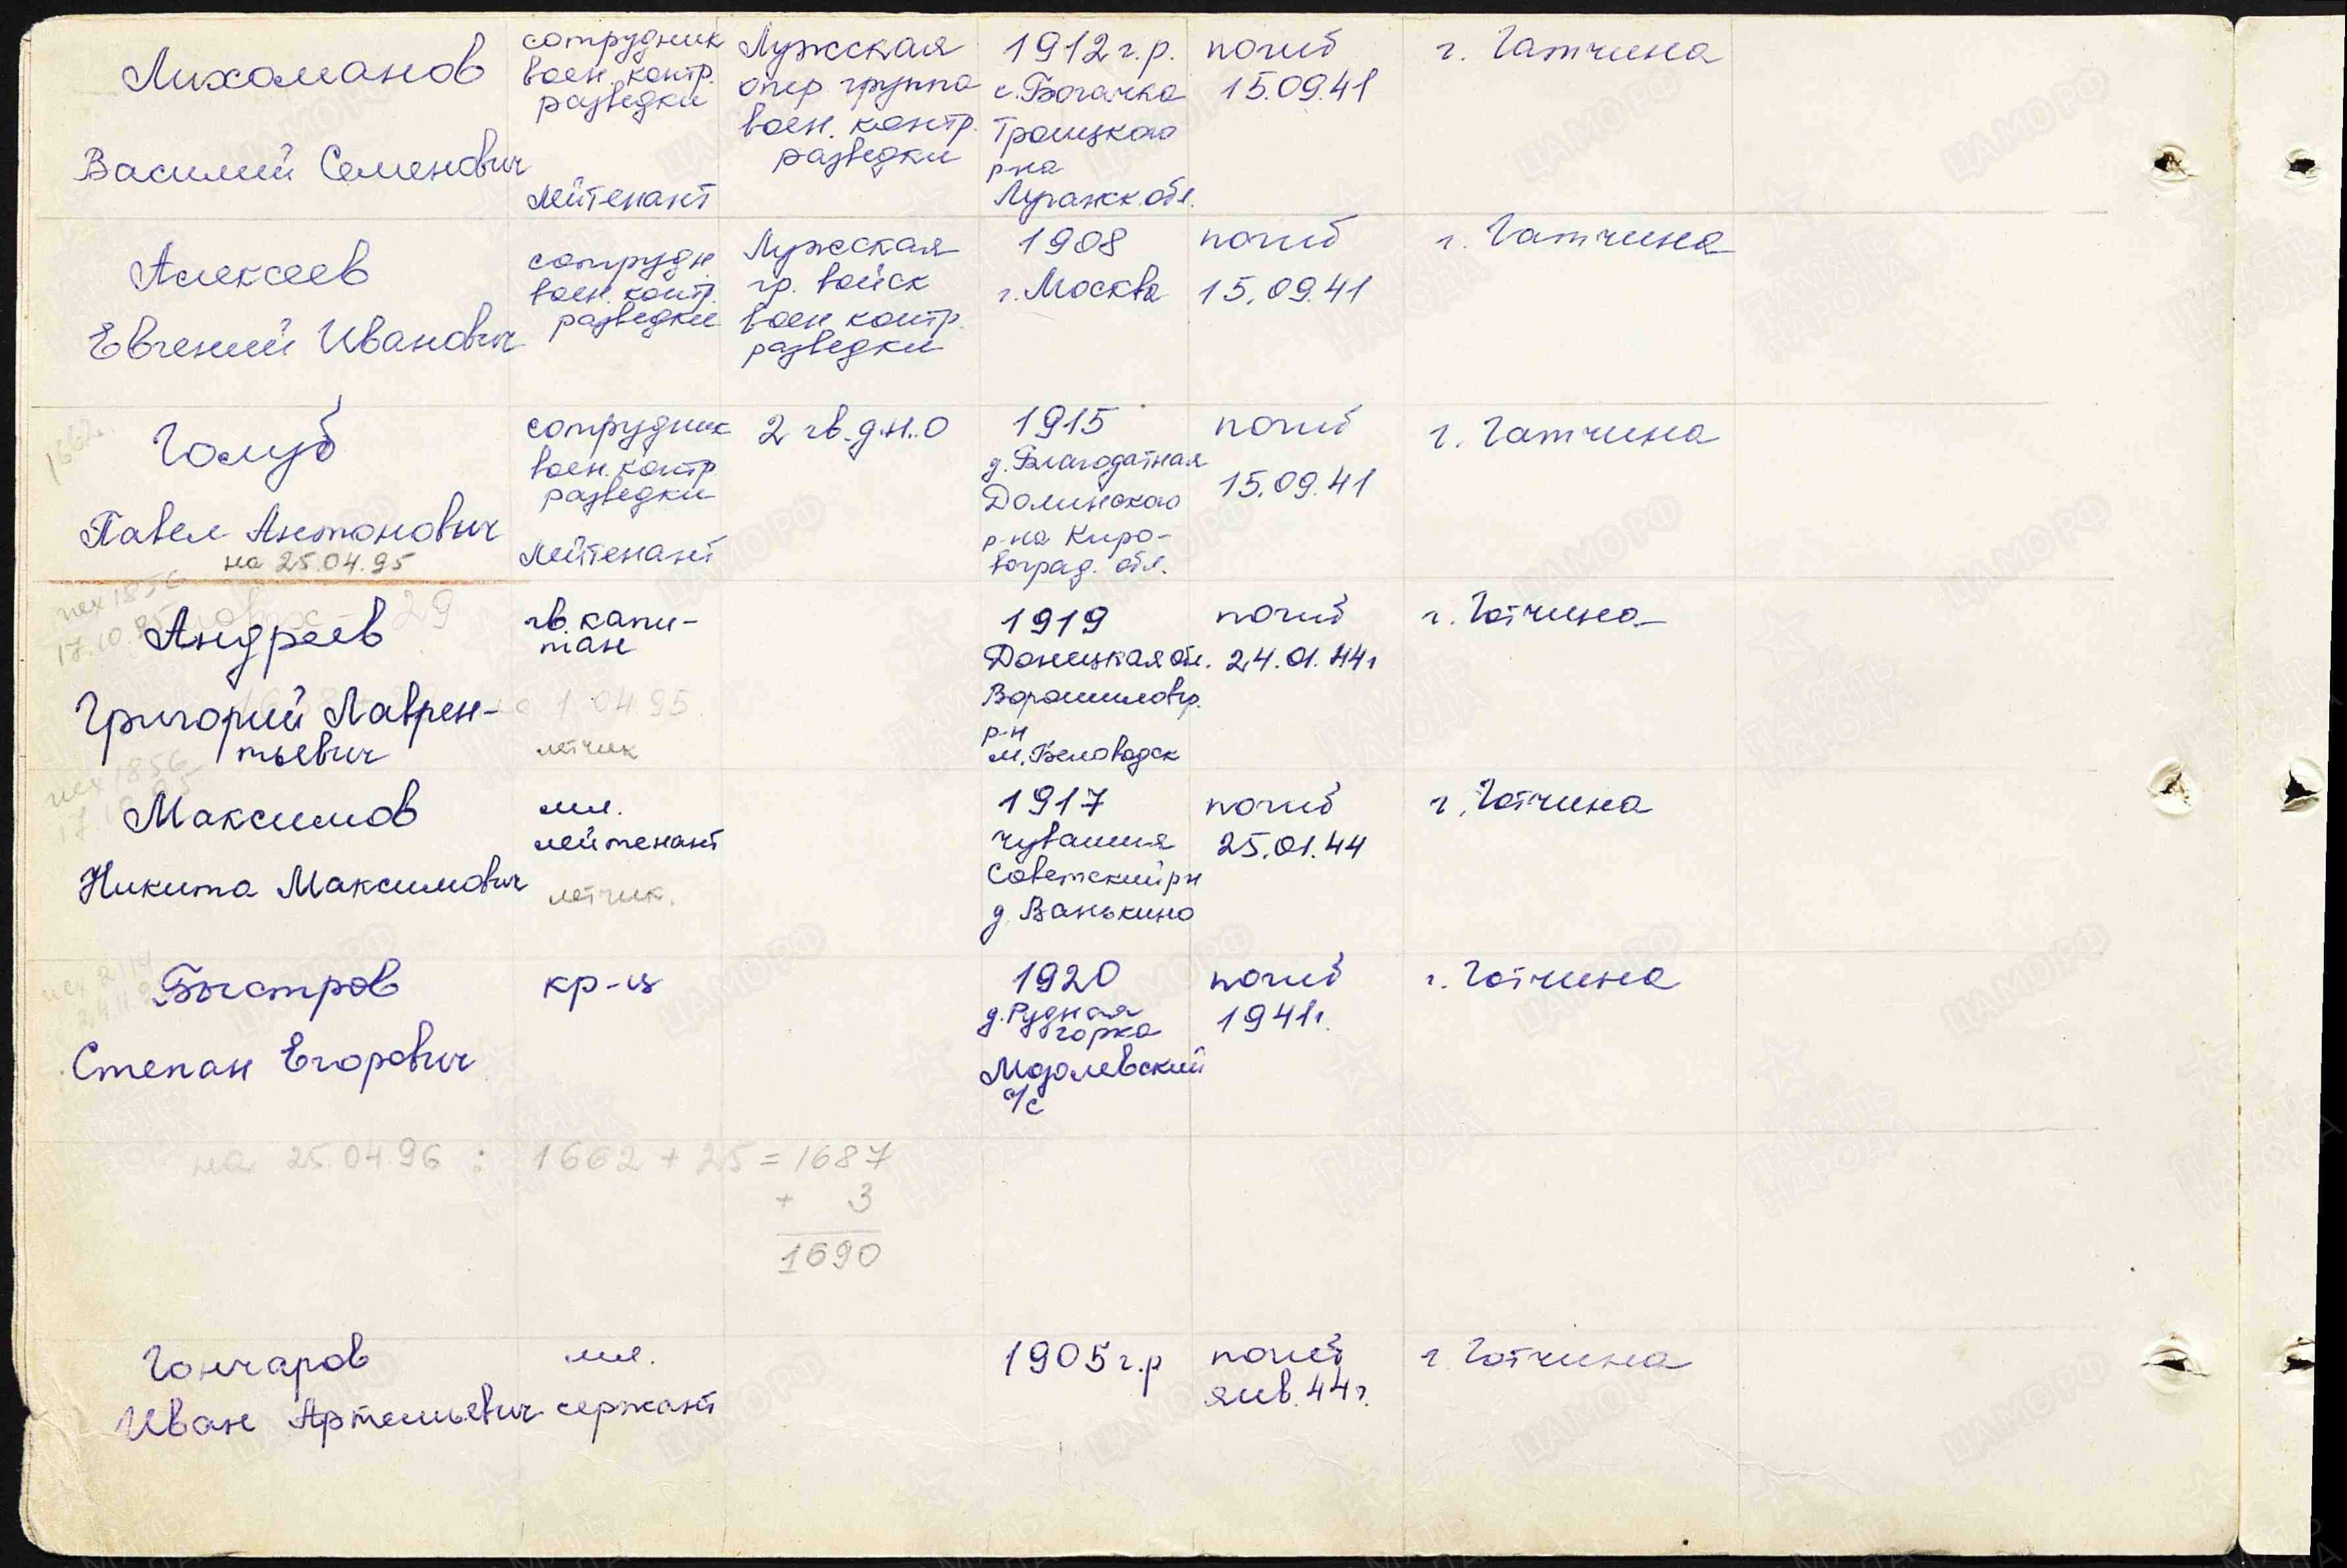 Лихоманов
Василий Семенович
сотрудник
воен. контр.
разведки
лейтенант
Лужская
опер. группа
воен. контр.
разведки
1912 г.р.
с. Богачка
Троицкого
р-на
Луганск. обл.
погиб
15.09.41
г. Гатчина
Алексеев
Евгений Иванович
сотрудн.
воен. контр.
разведки
Лужская
гр. войск
воен. контр.
разведки
1908
г. Москва
погиб
15.09.41
г. Гатчина
1662
Голуб
Павел Антонович
на 25.04.95
сотрудник
воен. контр
разведки
лейтенант
2 гв. д.н.о
1915
д. Благодатная
Долинского
р-на Киро-
воград. обл.
погиб
15.09.41
г. Гатчина
исх 1856
17.10.95
29
Андреев
Григорий Лаврен-
тьевич
гв. капи-
тан
1.04.95.
летчик
1919
Донецкая обл.
Ворошиловгр.
р-н
м. Беловодск
погиб
24.01.44г
г. Гатчина
исх 1856
Максимов
Никита Максимович
мл.
лейтенант
летчик.
1917
чувашия
Советский рн
д. Ванькино
погиб
25.01.44
г. Гатчина
Быстров
Степан Егорович
кр-ц
1920
д. Рудная
горка
Модолевский
с/с
погиб
1941г.
г. Гатчина
на 25.04.96 : 1662 + 25 = 1687
+ 3
1690
Гончаров
Иван Артемьевич
мл.
сержант
1905 г.р
погиб
янв. 44г.
г. Гатчина